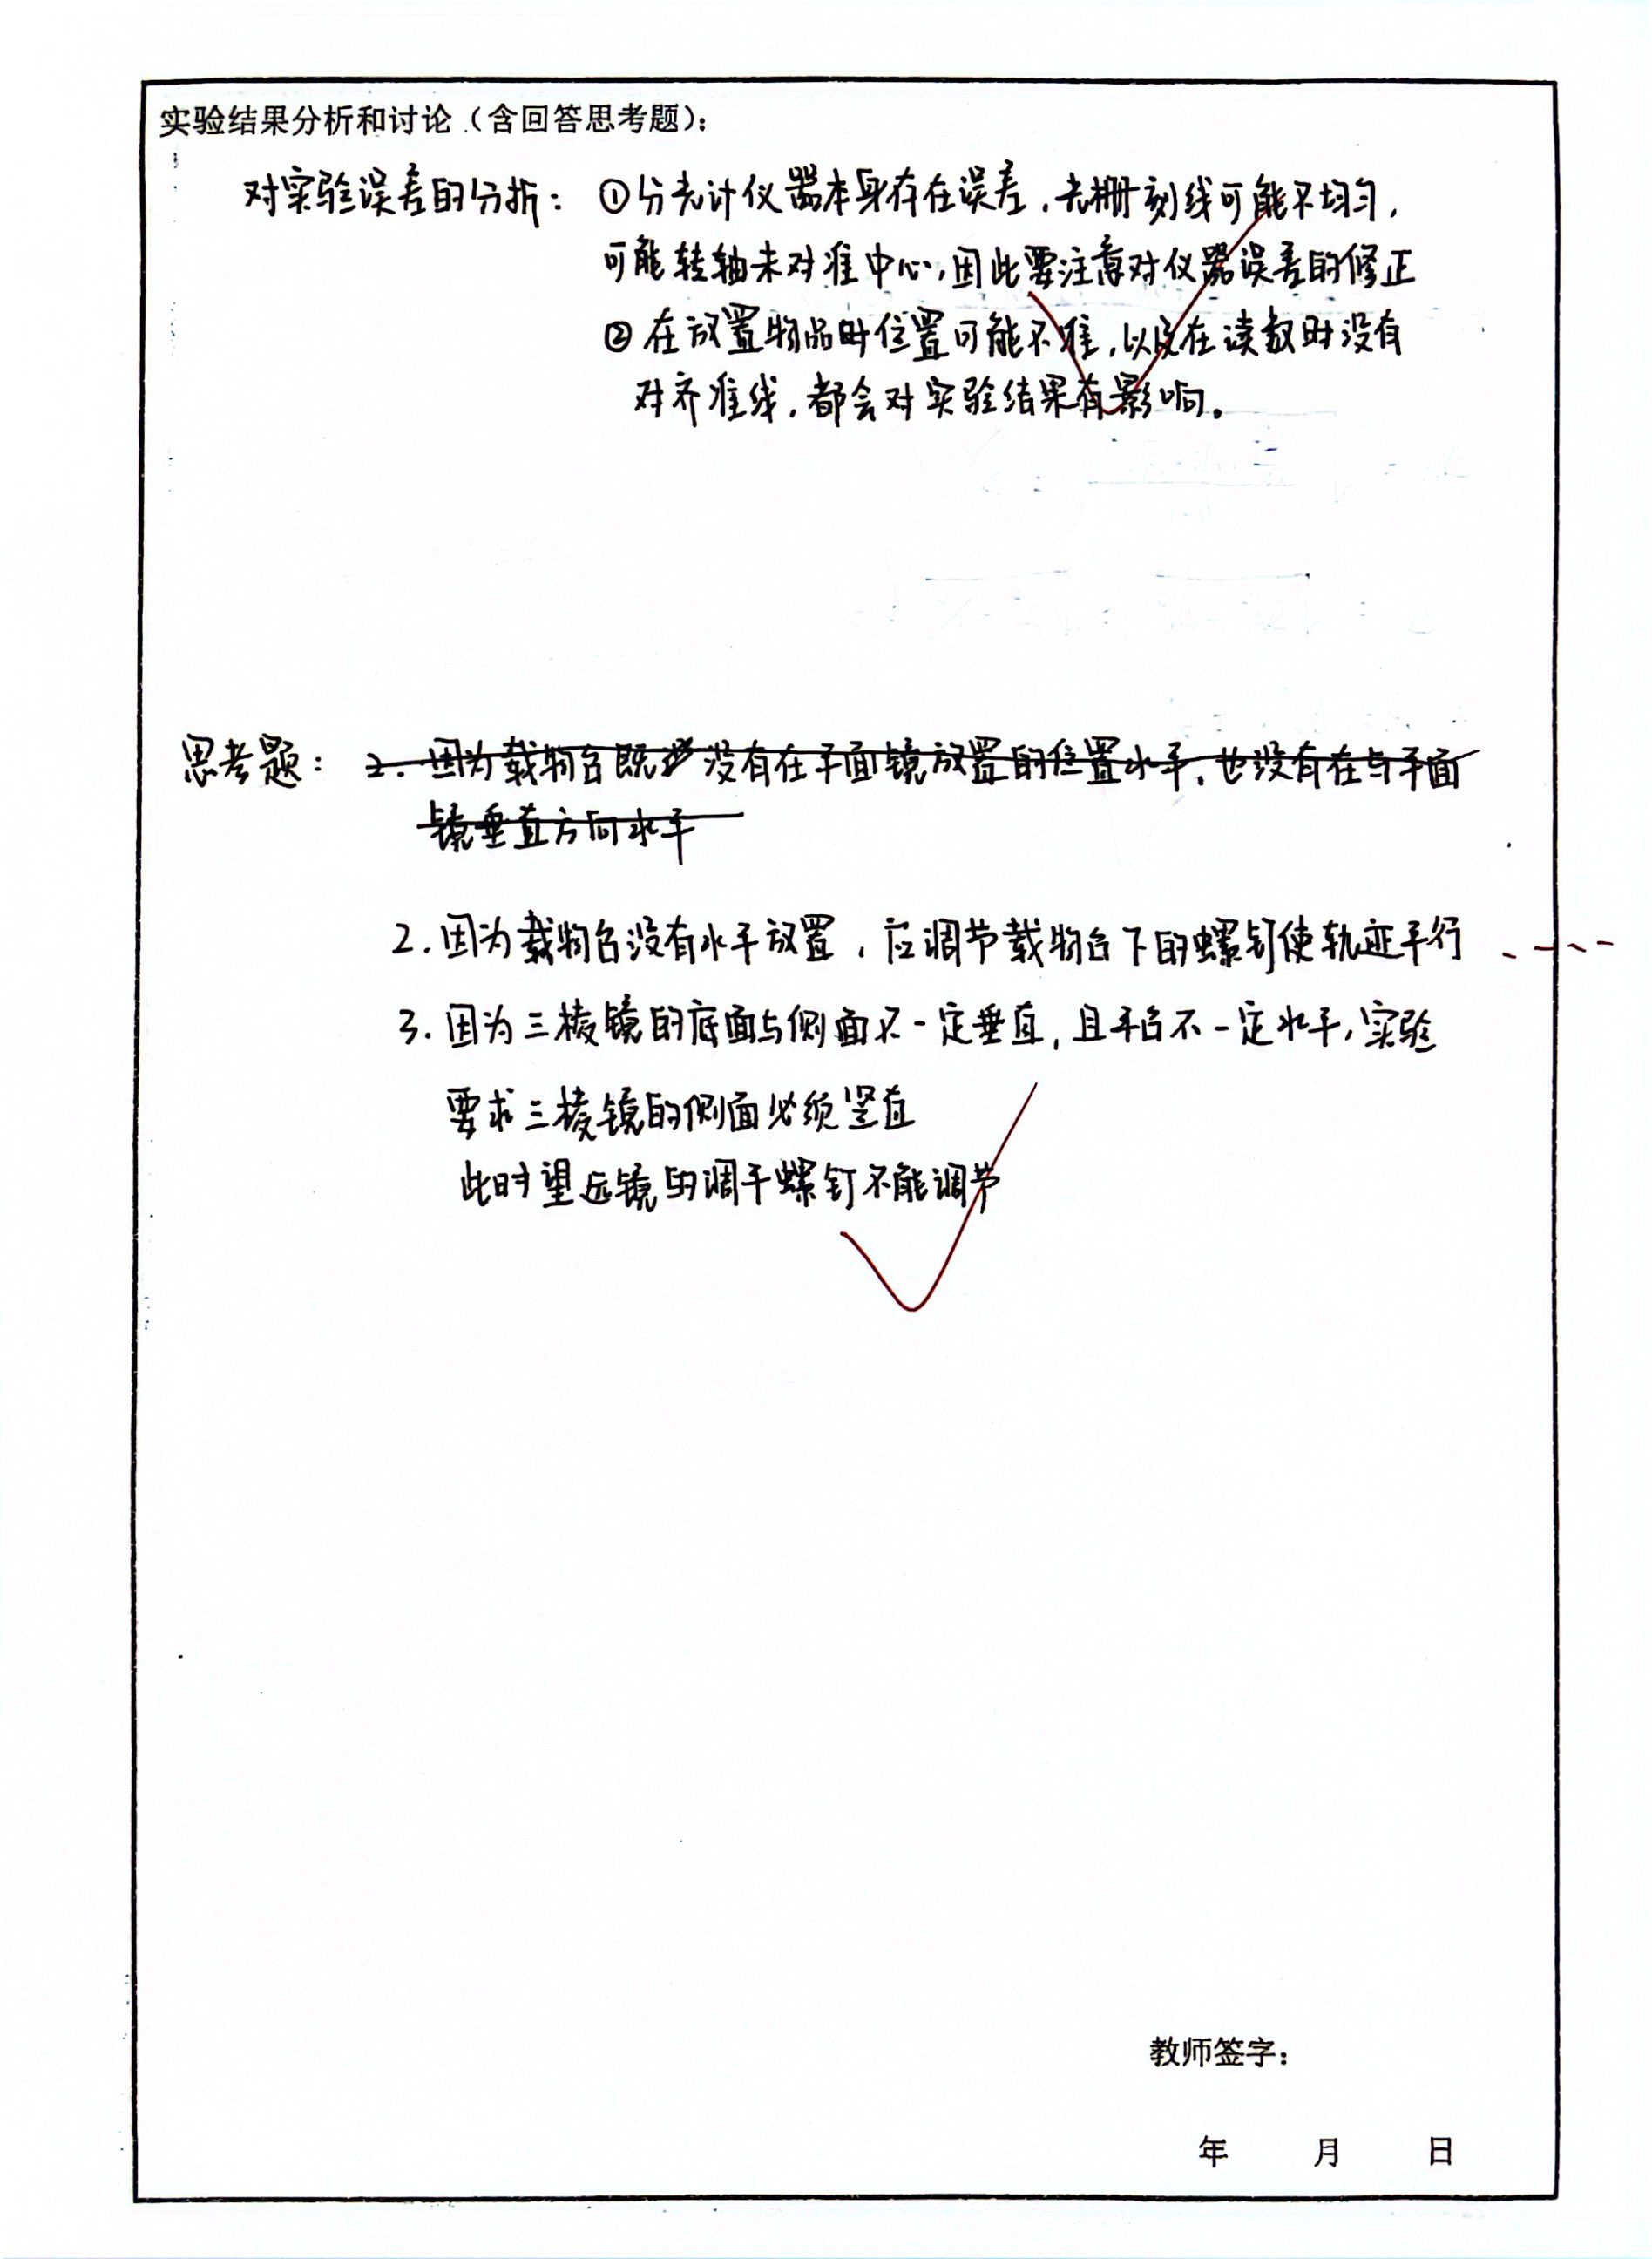 实验结果分析和讨论（含回答思考题）：
对实验误差的分析： ①分光计仪器本身存在误差，光栅刻线可能不均匀，
可能转轴未对准中心，因此要注意对仪器误差的修正
②在放置物品时位置可能不准，以及在读数时没有
对齐准线，都会对实验结果有影响。
思考题： 2. 因为载物台既没有在平面镜放置的位置水平，也没有在与平面
镜垂直方向水平
2. 因为载物台没有水平放置，应调节载物台下的螺钉使轨迹平行
3. 因为三棱镜的底面与侧面不一定垂直，且平台不一定水平，实验
要求三棱镜的侧面必须竖直
此时望远镜的调平螺钉不能调节
教师签字：
年 月 日